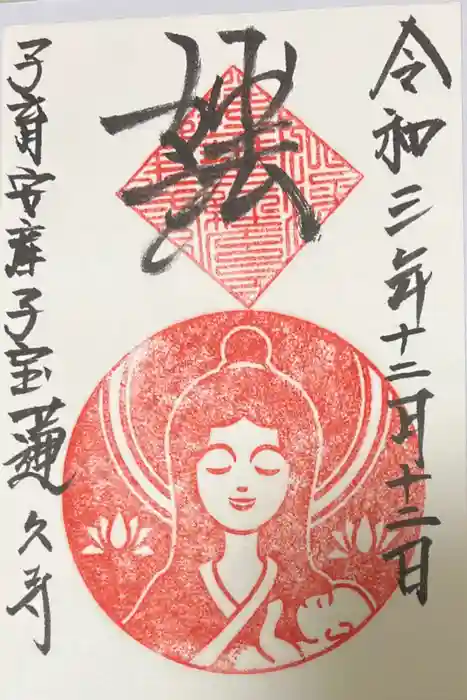 令和三年十二月十二日
妙法
子育安産子宝 蓮久寺